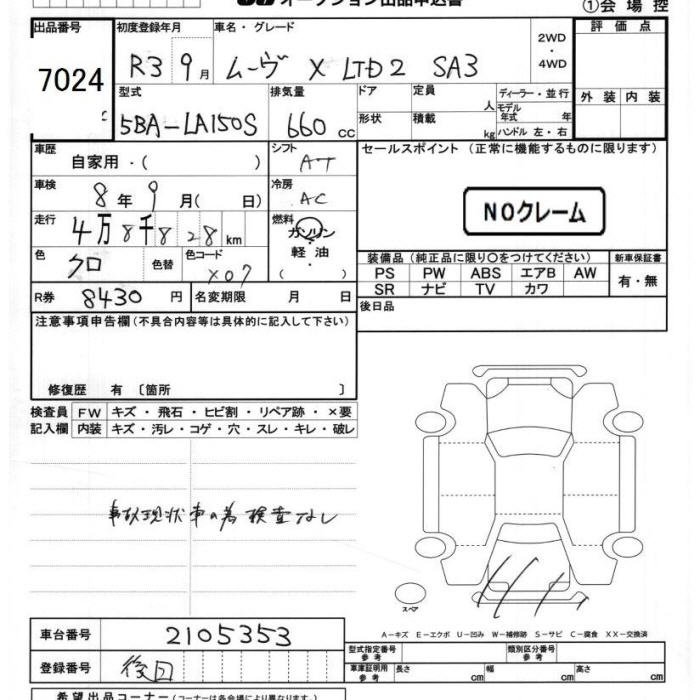 オークション出品申込書
①会場控
出品番号 初度登録年月 車名・グレード 評価点
7024 R3 9月 ムーヴ X LTD2 SA3 2WD・4WD
型式 排気量 ドア 定員 人 ディーラー・並行 外装 内装
5BA-LA150S 660cc 形状 積載 kg モデル年式 年
ハンドル 左・右
車歴 シフト セールスポイント (正常に機能するものに限ります)
自家用・( ) AT
車検 8年9月( 日) 冷房 AC
NOクレーム
走行 4万8千828km 燃料 ガソリン・軽油・( )
色 クロ 色替 色コード X07
装備品(純正品に限り〇をつけてください) 新車保証書
PS PW ABS エアB AW 有・無
SR ナビ TV カワ
R券 8430円 名変期限 月 日
後日品
注意事項申告欄(不具合内容等は具体的に記入して下さい)
修復歴 有〔箇所 〕
検査員 FW キズ・飛石・ヒビ割・リペア跡・×要
記入欄 内装 キズ・汚レ・コゲ・穴・スレ・キレ・破レ
事故現状車の為検査なし
スペア
A-キズ E-エクボ U-凹み W-補修跡 S-サビ C-腐食 XX-交換済
車台番号 2105353
型式指定番号参考 類別区分番号参考
登録番号 後日
車庫証明用参考 長さ cm 幅 cm 高さ cm
希望出品コーナー(コーナーは各会場により異なります)